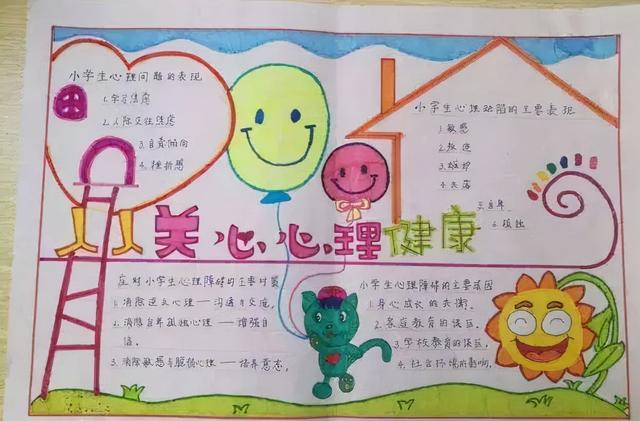 小学生心理问题的表现
1.学习焦虑
2.人际交往焦虑
3.自卑倾向
4.挫折感
小学生心理缺陷的主要表现
1.敏感
2.叛逆
3.嫉妒
4.失落
5.自卑
6.孤独
关心心理健康
应对小学生心理障碍的主要对策
1.消除逆反心理——沟通与交流。
2.消除自卑孤独心理——增强自
信。
3.消除敏感与脆弱心理——培养意志。
小学生心理障碍的主要原因
1.身心成长的失衡。
2.家庭教育的误区。
3.学校教育的误区。
4.社会环境的影响。